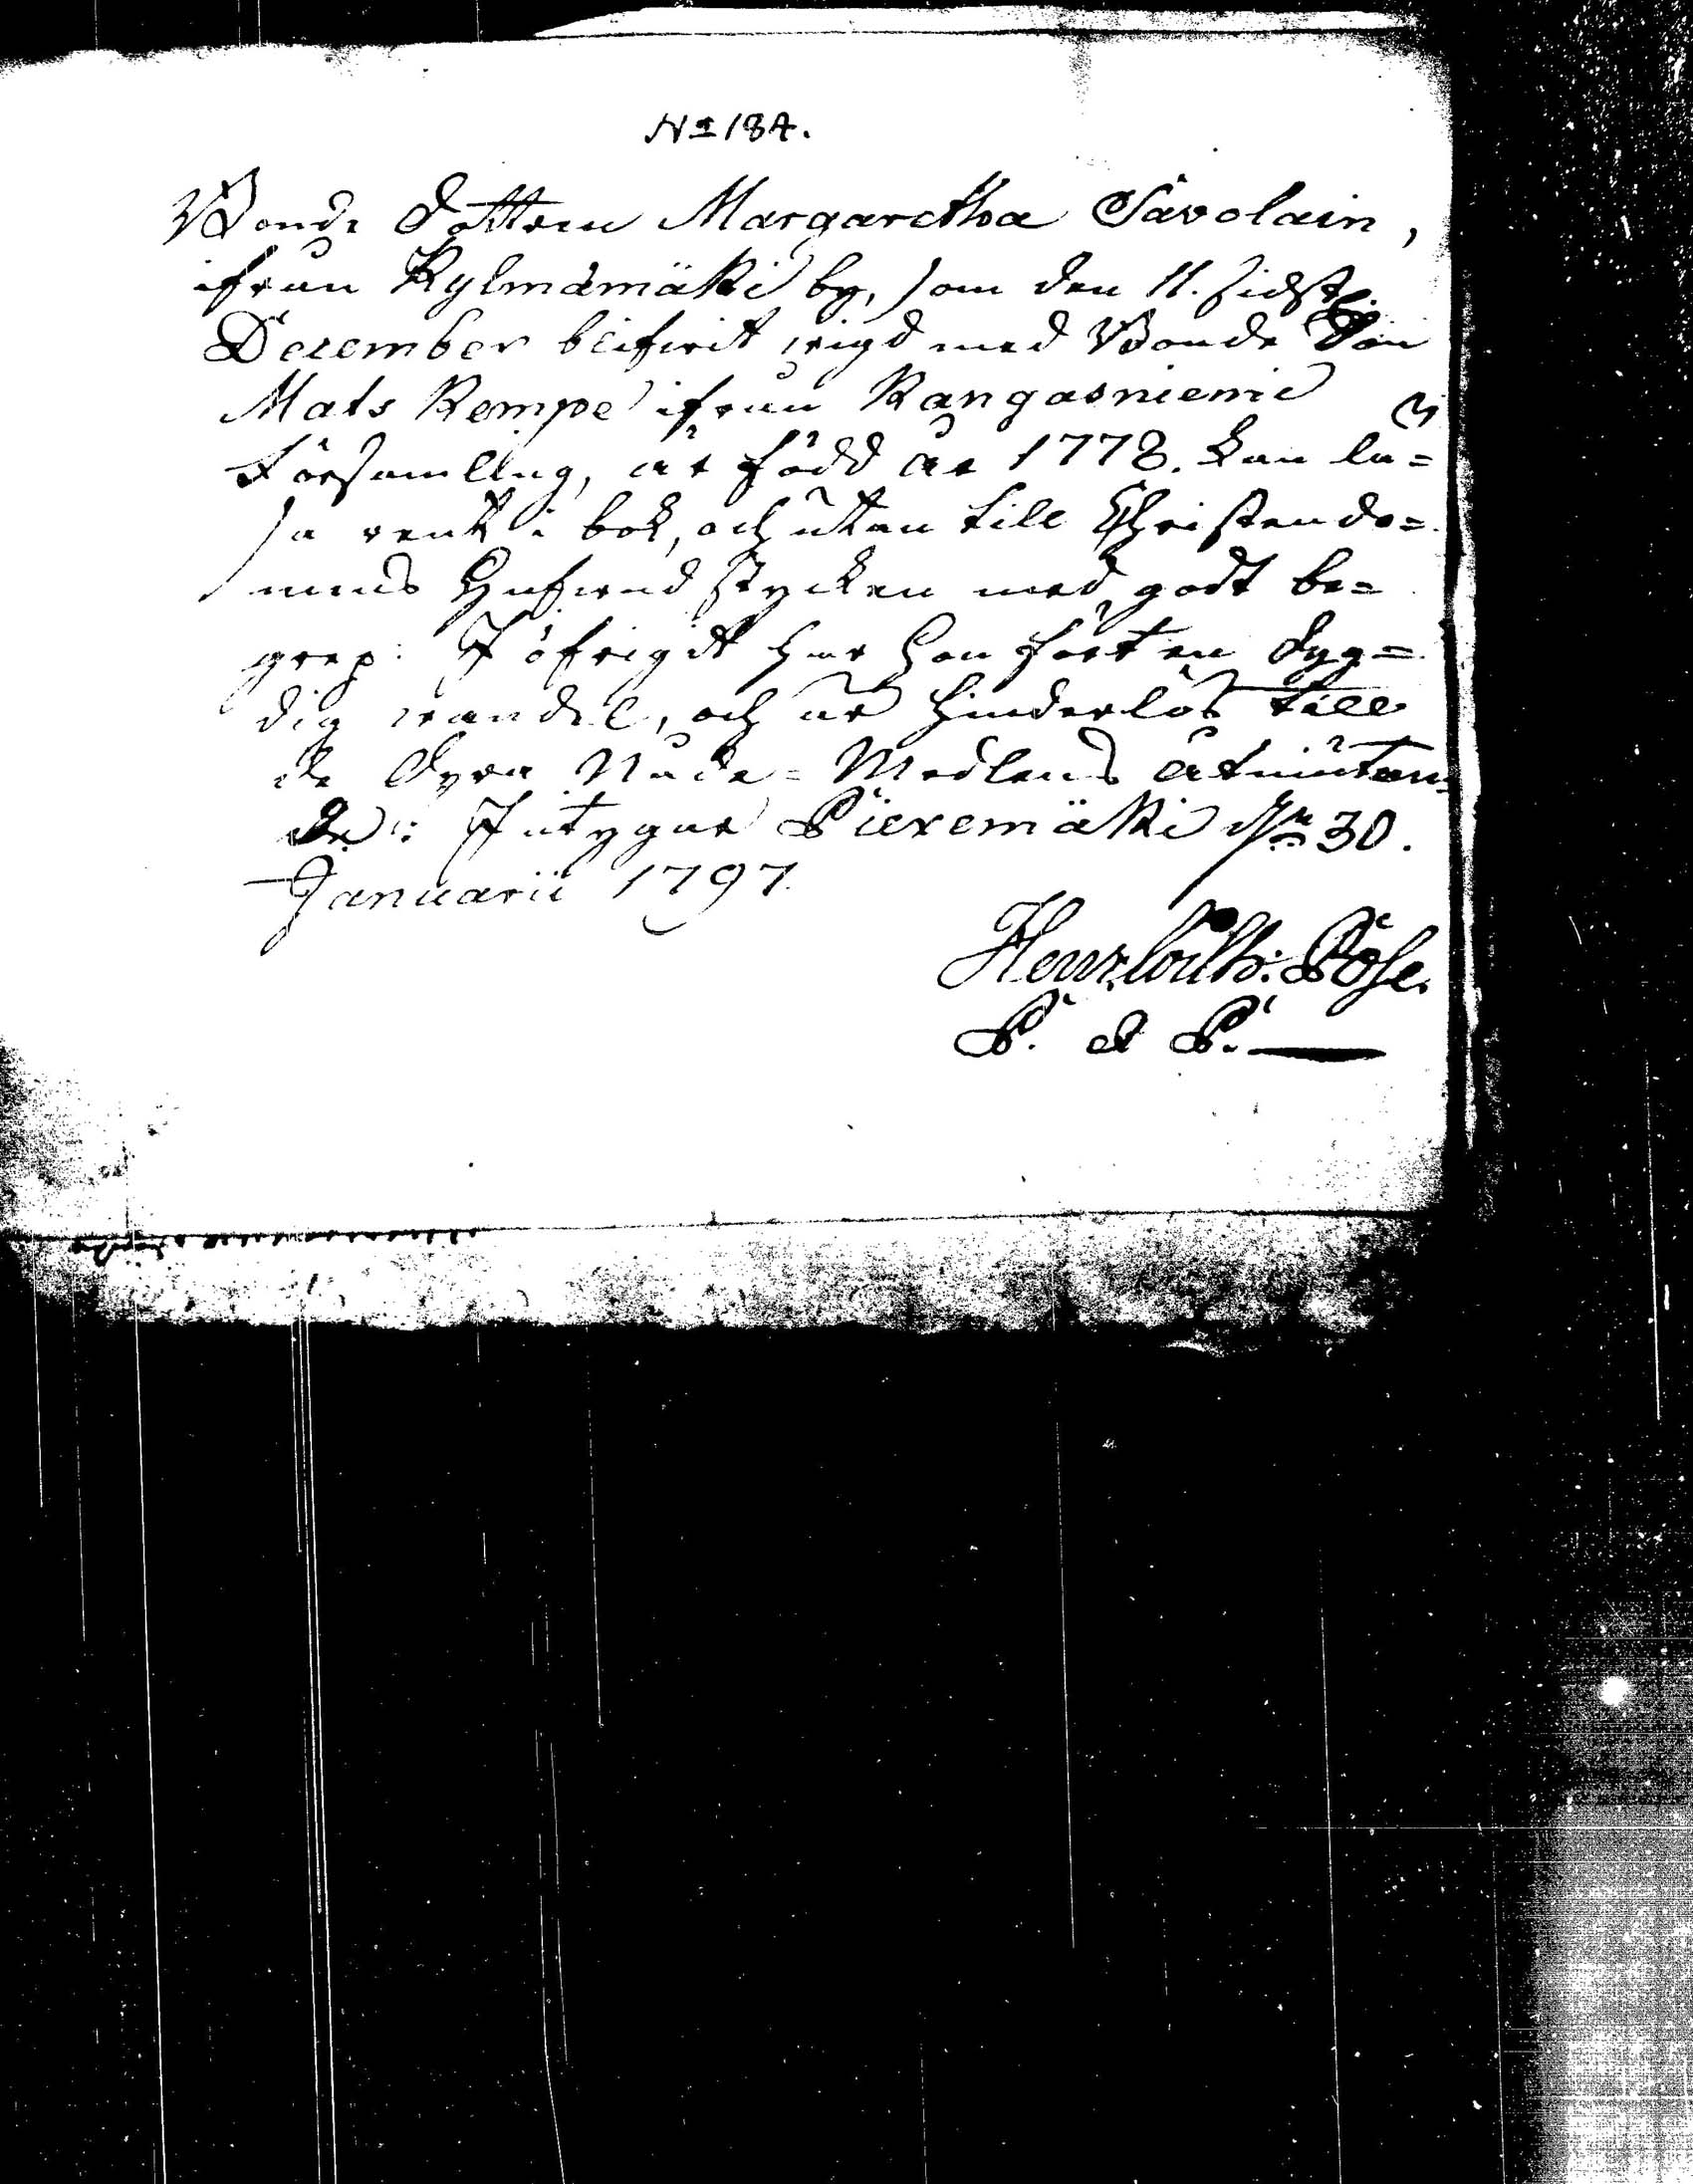 No 184.
Bonde Dottren Margaretha Savolain,
ifrån Kylmämäki by, som den 11. sidstl.
December blifwit wigd med Bonde Son
Mats Kempe ifrån Kangasniemi
Församling, är född år 1778. Kan lä=
sa rent i bok, och utan till Christendo=
mens Hufwud stycken med godt be=
grep. I öfrigit har hon fört en dyg=
dig wandel, och är hinderlös till
de dyra Nåde=Medlens åtniutan=
de: Intygar Pieksemäki d. 30.
Januarii 1797.
Henr. Wilh:
P. et P.